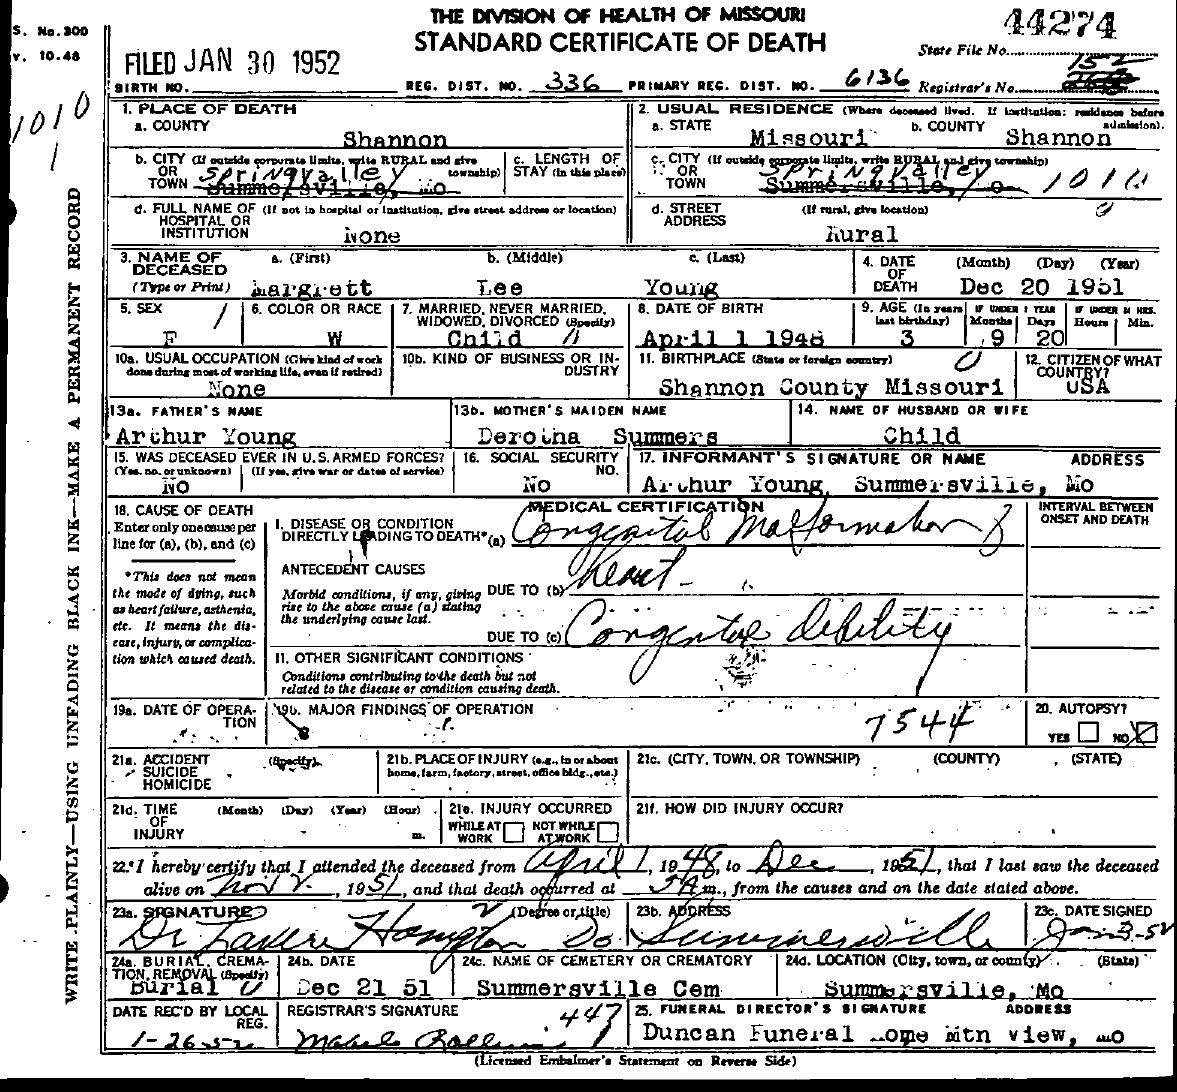 THE DIVISION OF HEALTH OF MISSOURI
STANDARD CERTIFICATE OF DEATH
44274
State File No.
S. No. 300
v. 10-48
FILED JAN 30 1952
BIRTH NO.
REG. DIST. NO. 336 PRIMARY REG. DIST. NO. 6136 Registrar's No. 152
1010
1
1. PLACE OF DEATH
a. COUNTY
Shannon
2. USUAL RESIDENCE (Where deceased lived. If institution: residence before admission).
a. STATE Missouri b. COUNTY Shannon
b. CITY (If outside corporate limits, write RURAL and give township)
OR
TOWN Springvalley
Summersville, Mo
c. LENGTH OF STAY (in this place)
c. CITY (If outside corporate limits, write RURAL and give township)
OR
TOWN Springvalley
Summersville, Mo 1010
d. FULL NAME OF (If not in hospital or institution, give street address or location)
HOSPITAL OR
INSTITUTION None
d. STREET ADDRESS (If rural, give location)
Rural
3. NAME OF DECEASED
(Type or Print)
a. (First) b. (Middle) c. (Last)
Margrett Lee Young
4. DATE OF DEATH (Month) (Day) (Year)
Dec 20 1951
5. SEX
F
6. COLOR OR RACE
W
7. MARRIED, NEVER MARRIED, WIDOWED, DIVORCED (Specify)
Child
8. DATE OF BIRTH
April 1 1948
9. AGE (In years last birthday) IF UNDER 1 YEAR Months Days IF UNDER 24 HRS. Hours Min.
3 9 20
10a. USUAL OCCUPATION (Give kind of work done during most of working life, even if retired)
None
10b. KIND OF BUSINESS OR INDUSTRY
11. BIRTHPLACE (State or foreign country)
Shannon County Missouri
12. CITIZEN OF WHAT COUNTRY?
USA
13a. FATHER'S NAME
Arthur Young
13b. MOTHER'S MAIDEN NAME
Derotha Summers
14. NAME OF HUSBAND OR WIFE
Child
15. WAS DECEASED EVER IN U.S. ARMED FORCES?
(Yes, no, or unknown) (If yes, give war or dates of service)
No
16. SOCIAL SECURITY NO.
No
17. INFORMANT'S SIGNATURE OR NAME ADDRESS
Arthur Young, Summersville, Mo
18. CAUSE OF DEATH
Enter only one cause per line for (a), (b), and (c)
*This does not mean the mode of dying, such as heart failure, asthenia, etc. It means the disease, injury, or complication which caused death.
MEDICAL CERTIFICATION
INTERVAL BETWEEN ONSET AND DEATH
I. DISEASE OR CONDITION DIRECTLY LEADING TO DEATH* (a) Congenital Malformation of
ANTECEDENT CAUSES
Morbid conditions, if any, giving rise to the above cause (a) stating the underlying cause last.
DUE TO (b) heart
DUE TO (c) Congental debility
II. OTHER SIGNIFICANT CONDITIONS
Conditions contributing to the death but not related to the disease or condition causing death.
19a. DATE OF OPERATION
19b. MAJOR FINDINGS OF OPERATION
7544
20. AUTOPSY?
YES NO
21a. ACCIDENT SUICIDE HOMICIDE (Specify)
21b. PLACE OF INJURY (e.g., in or about home, farm, factory, street, office bldg., etc.)
21c. (CITY, TOWN, OR TOWNSHIP) (COUNTY) (STATE)
21d. TIME OF INJURY (Month) (Day) (Year) (Hour) m.
21e. INJURY OCCURRED
WHILE AT WORK NOT WHILE AT WORK
21f. HOW DID INJURY OCCUR?
22. I hereby certify that I attended the deceased from April 1, 1948, to Dec, 1951, that I last saw the deceased
alive on Nov, 1951, and that death occurred at 5 A m., from the causes and on the date stated above.
23a. SIGNATURE (Degree or title)
Dr Do
23b. ADDRESS
Summersville
23c. DATE SIGNED
Jan 3-52
24a. BURIAL, CREMATION, REMOVAL (Specify)
Burial
24b. DATE
Dec 21 51
24c. NAME OF CEMETERY OR CREMATORY
Summersville Cem
24d. LOCATION (City, town, or county) (State)
Summersville, Mo
DATE REC'D BY LOCAL REG.
1-26-52
REGISTRAR'S SIGNATURE
447
25. FUNERAL DIRECTOR'S SIGNATURE ADDRESS
Duncan Funeral Home Mtn View, Mo
(Licensed Embalmer's Statement on Reverse Side)
WRITE PLAINLY—USING UNFADING BLACK INK—MAKE A PERMANENT RECORD